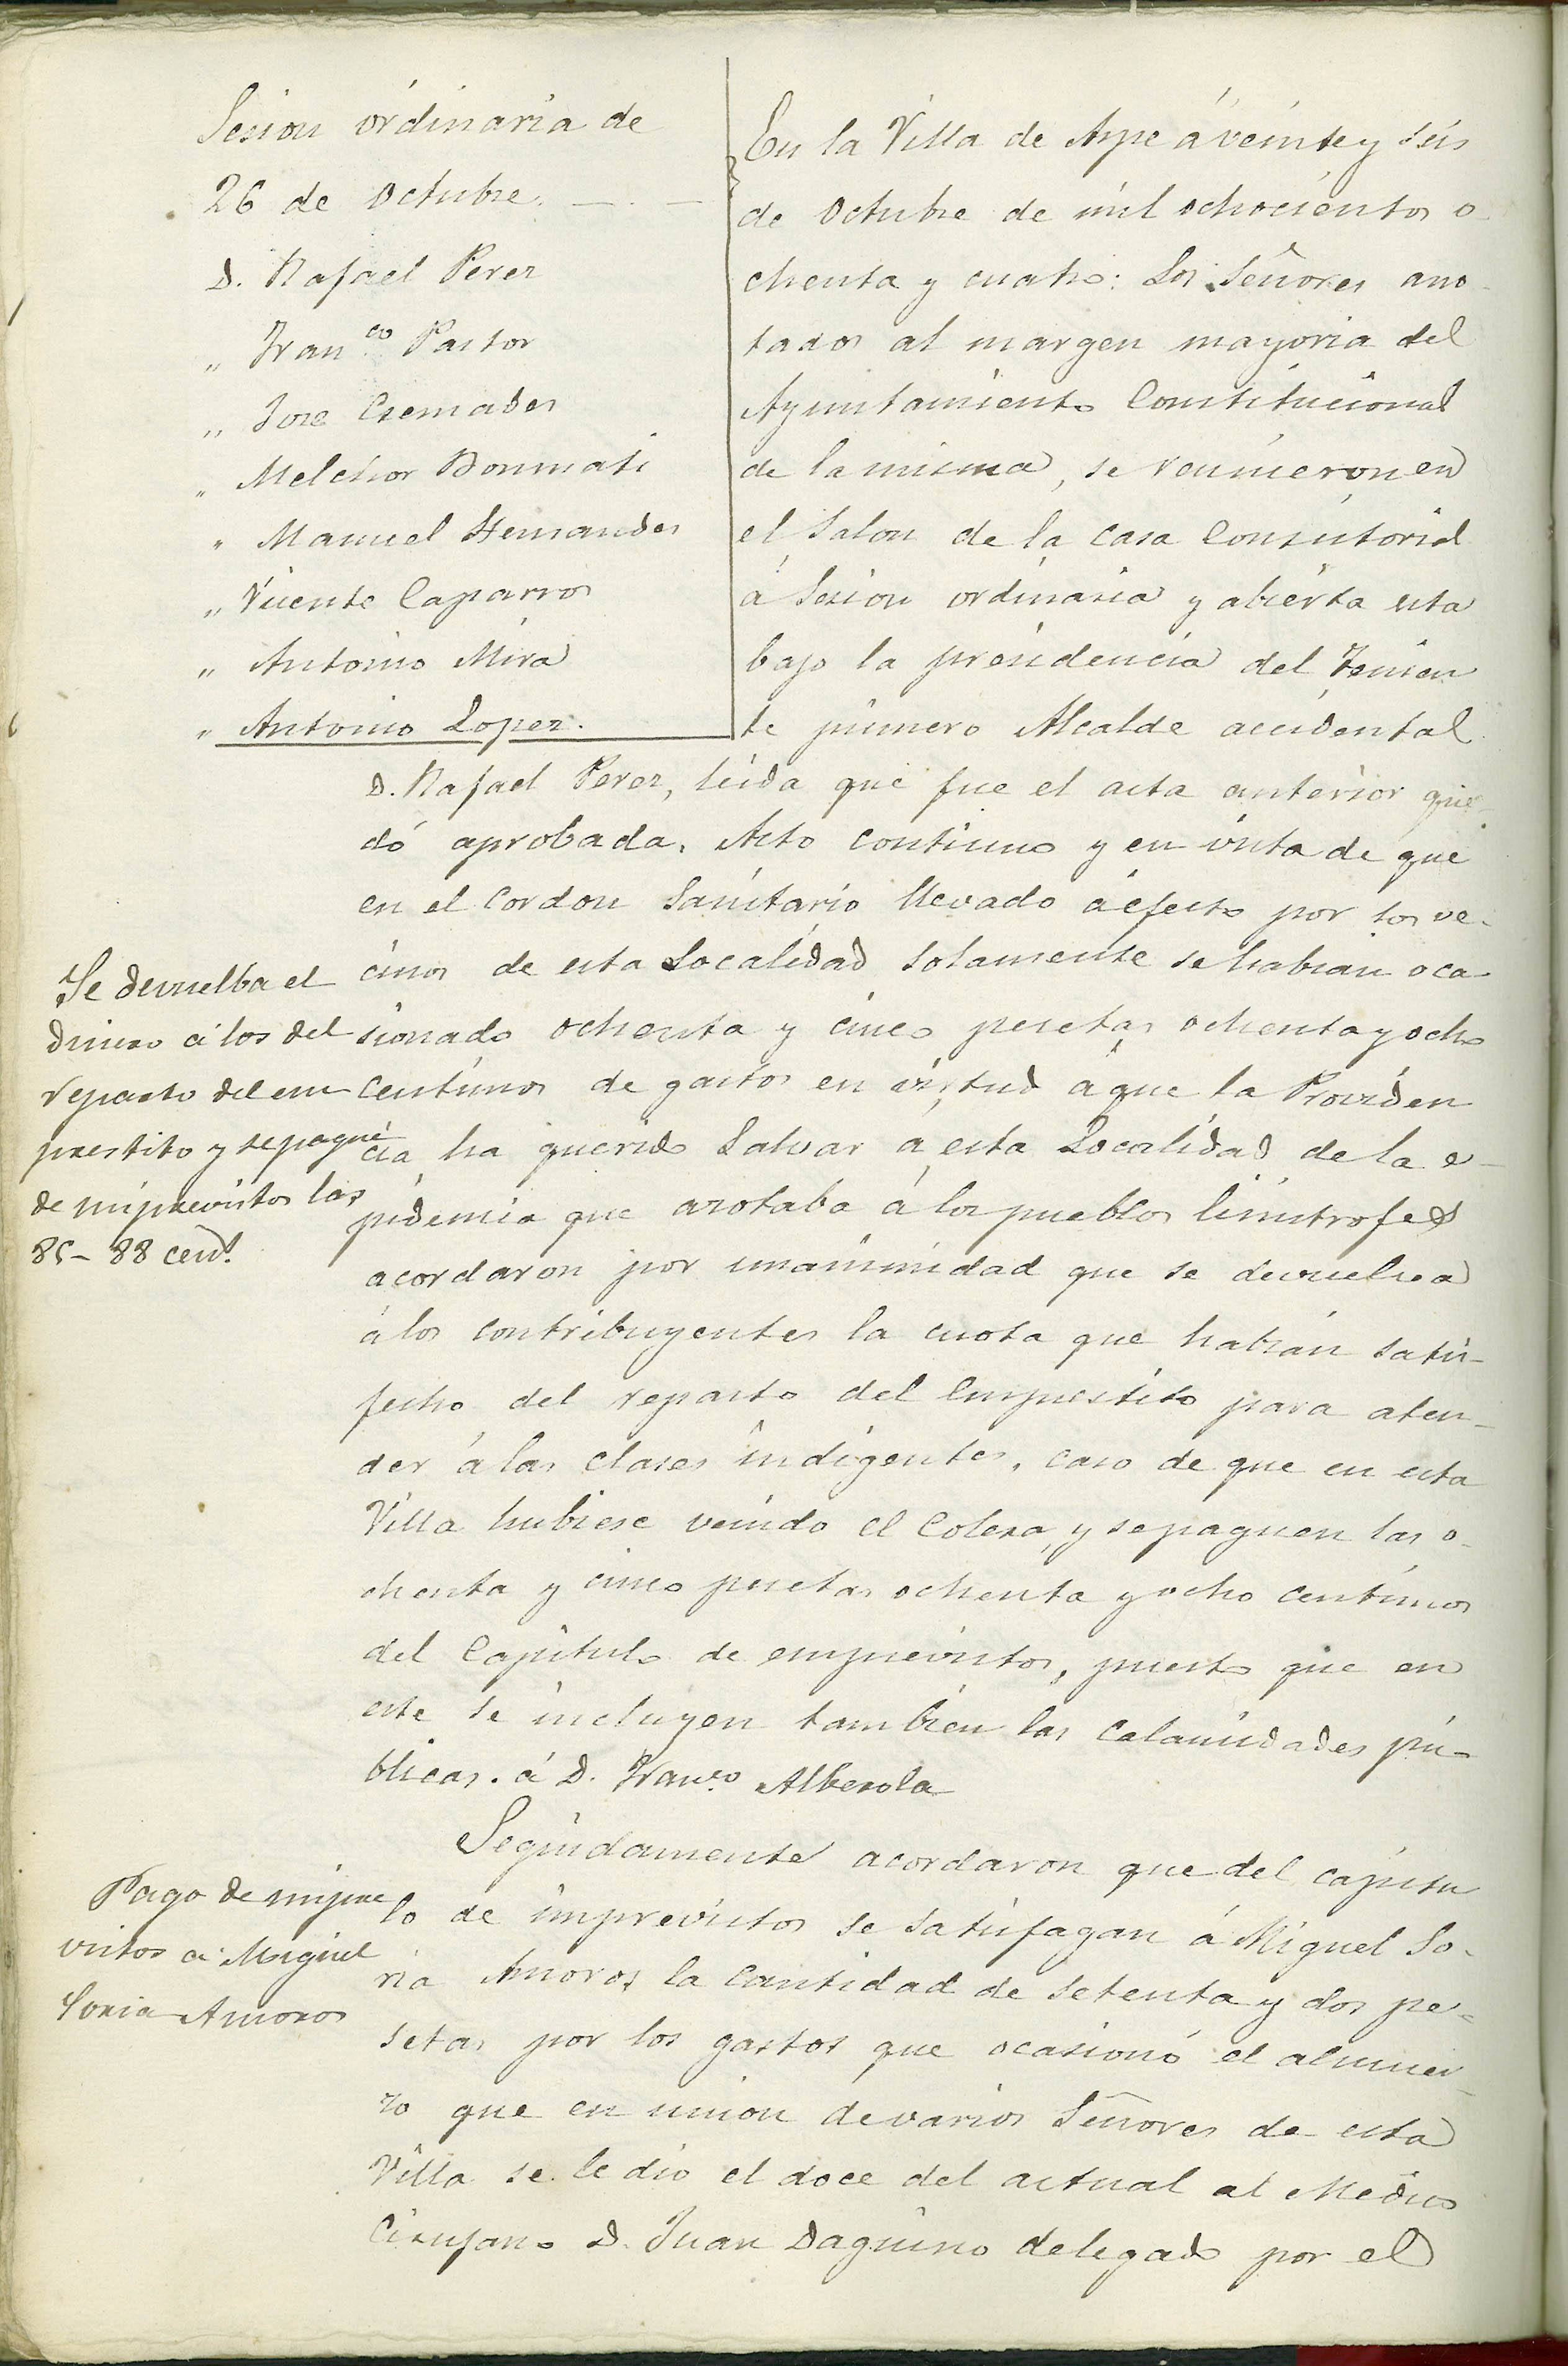 Sesion ordinaria de
26 de Octubre. — . —
D. Rafael Perez
„ Fran.co Pastor
„ Jose Cremades
„ Melchor Bonmati
„ Manuel Hernandez
„ Vicente Caparros
„ Antonio Mira
„ Antonio Lopez.
En la Villa de Aspe á veinte y seis
de Octubre de mil ochocientos o-
chenta y cuatro: Los Señores ano-
tados al margen mayoria del
Ayuntamiento Constitucional
de la misma, se reunieron en
el Salon de la casa Consistorial
á Sesion ordinaria y abierta esta
bajo la presidencia del Tenien
te primero Alcalde accidental
D. Rafael Perez, leida que fue el acta anterior que-
dó aprobada. Acto continuo y en vista de que
en el Cordon Sanitario llevado á efecto por los ve-
cinos de esta Localidad solamente se habian oca-
sionado ochenta y cinco pesetas ochenta y ocho
centimos de gastos en virtud á que la Providen
cia ha querido Salvar á esta Localidad de la e-
pidemia que azotaba á los pueblos limitrofes
acordaron por unanimidad que se devuelva
á los contribuyentes la cuota que habian satis-
fecho del reparto del Emprestito para aten-
der á las clases indigentes, caso de que en esta
Villa hubiese venido el Colera, y se paguen las o-
chenta y cinco pesetas ochenta y ocho centimos
del Capitulo de emprevistos, puesto que en
este se incluyen tambien las Calamidades pú-
blicas. á D. Franco Alberola
Se devuelba el
dinero á los del
reparto del em
prestito y se pague
de imprevistos las
85- 88 cents.
Seguidamente acordaron que del capitu
lo de imprevistos se satisfagan á Miguel So-
ria Amoros la Cantidad de setenta y dos pe-
setas por los gastos que ocasionó el almuer-
zo que en union de varios Señores de esta
Villa se le dio el doce del actual al Medico
Cirujano D. Juan Daguino delegado por el
Pago de impre
vistos á Miguel
Soria Amoros